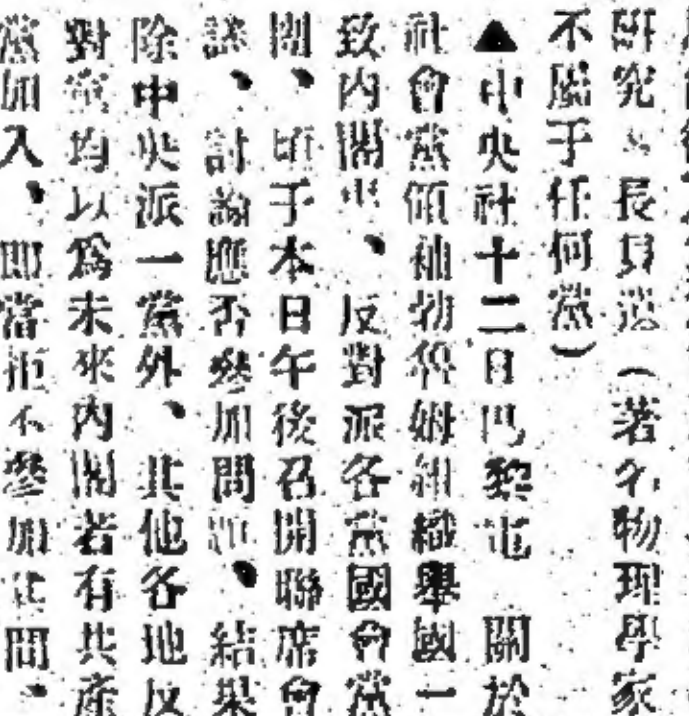 研究所長貝蘭（著名物理學家
不屬于任何黨）
▲中央社十二日巴黎電　關於
社會黨領袖勃侖姆組織舉國一
致內閣事、反對派各黨國會黨
團、頃于本日午後召開聯席會
議、討論應否參加問題、結果
除中央派一黨外、其他各地反
對黨均以爲未來內閣若有共產
黨加入、卽當拒不參加其間、